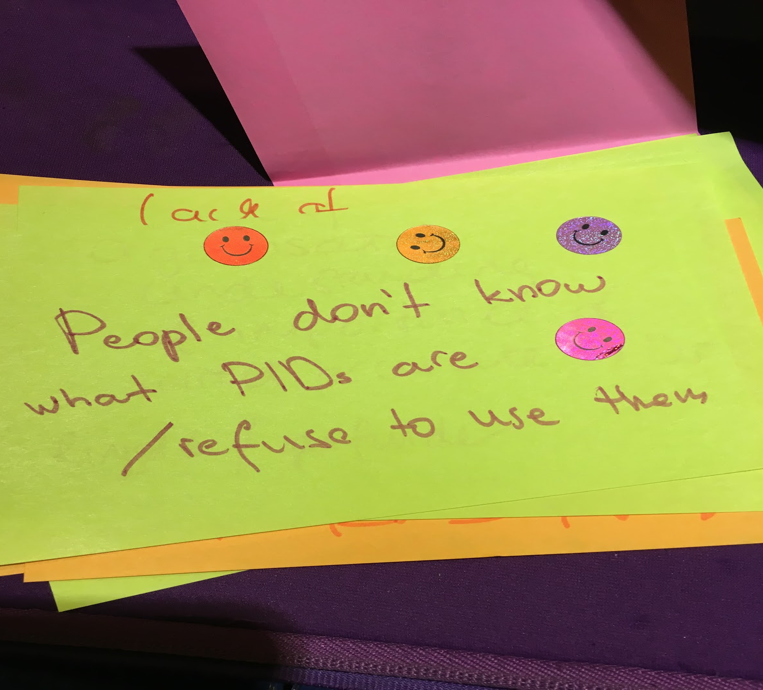 lack of
People don't know
what PIDs are
/refuse to use them